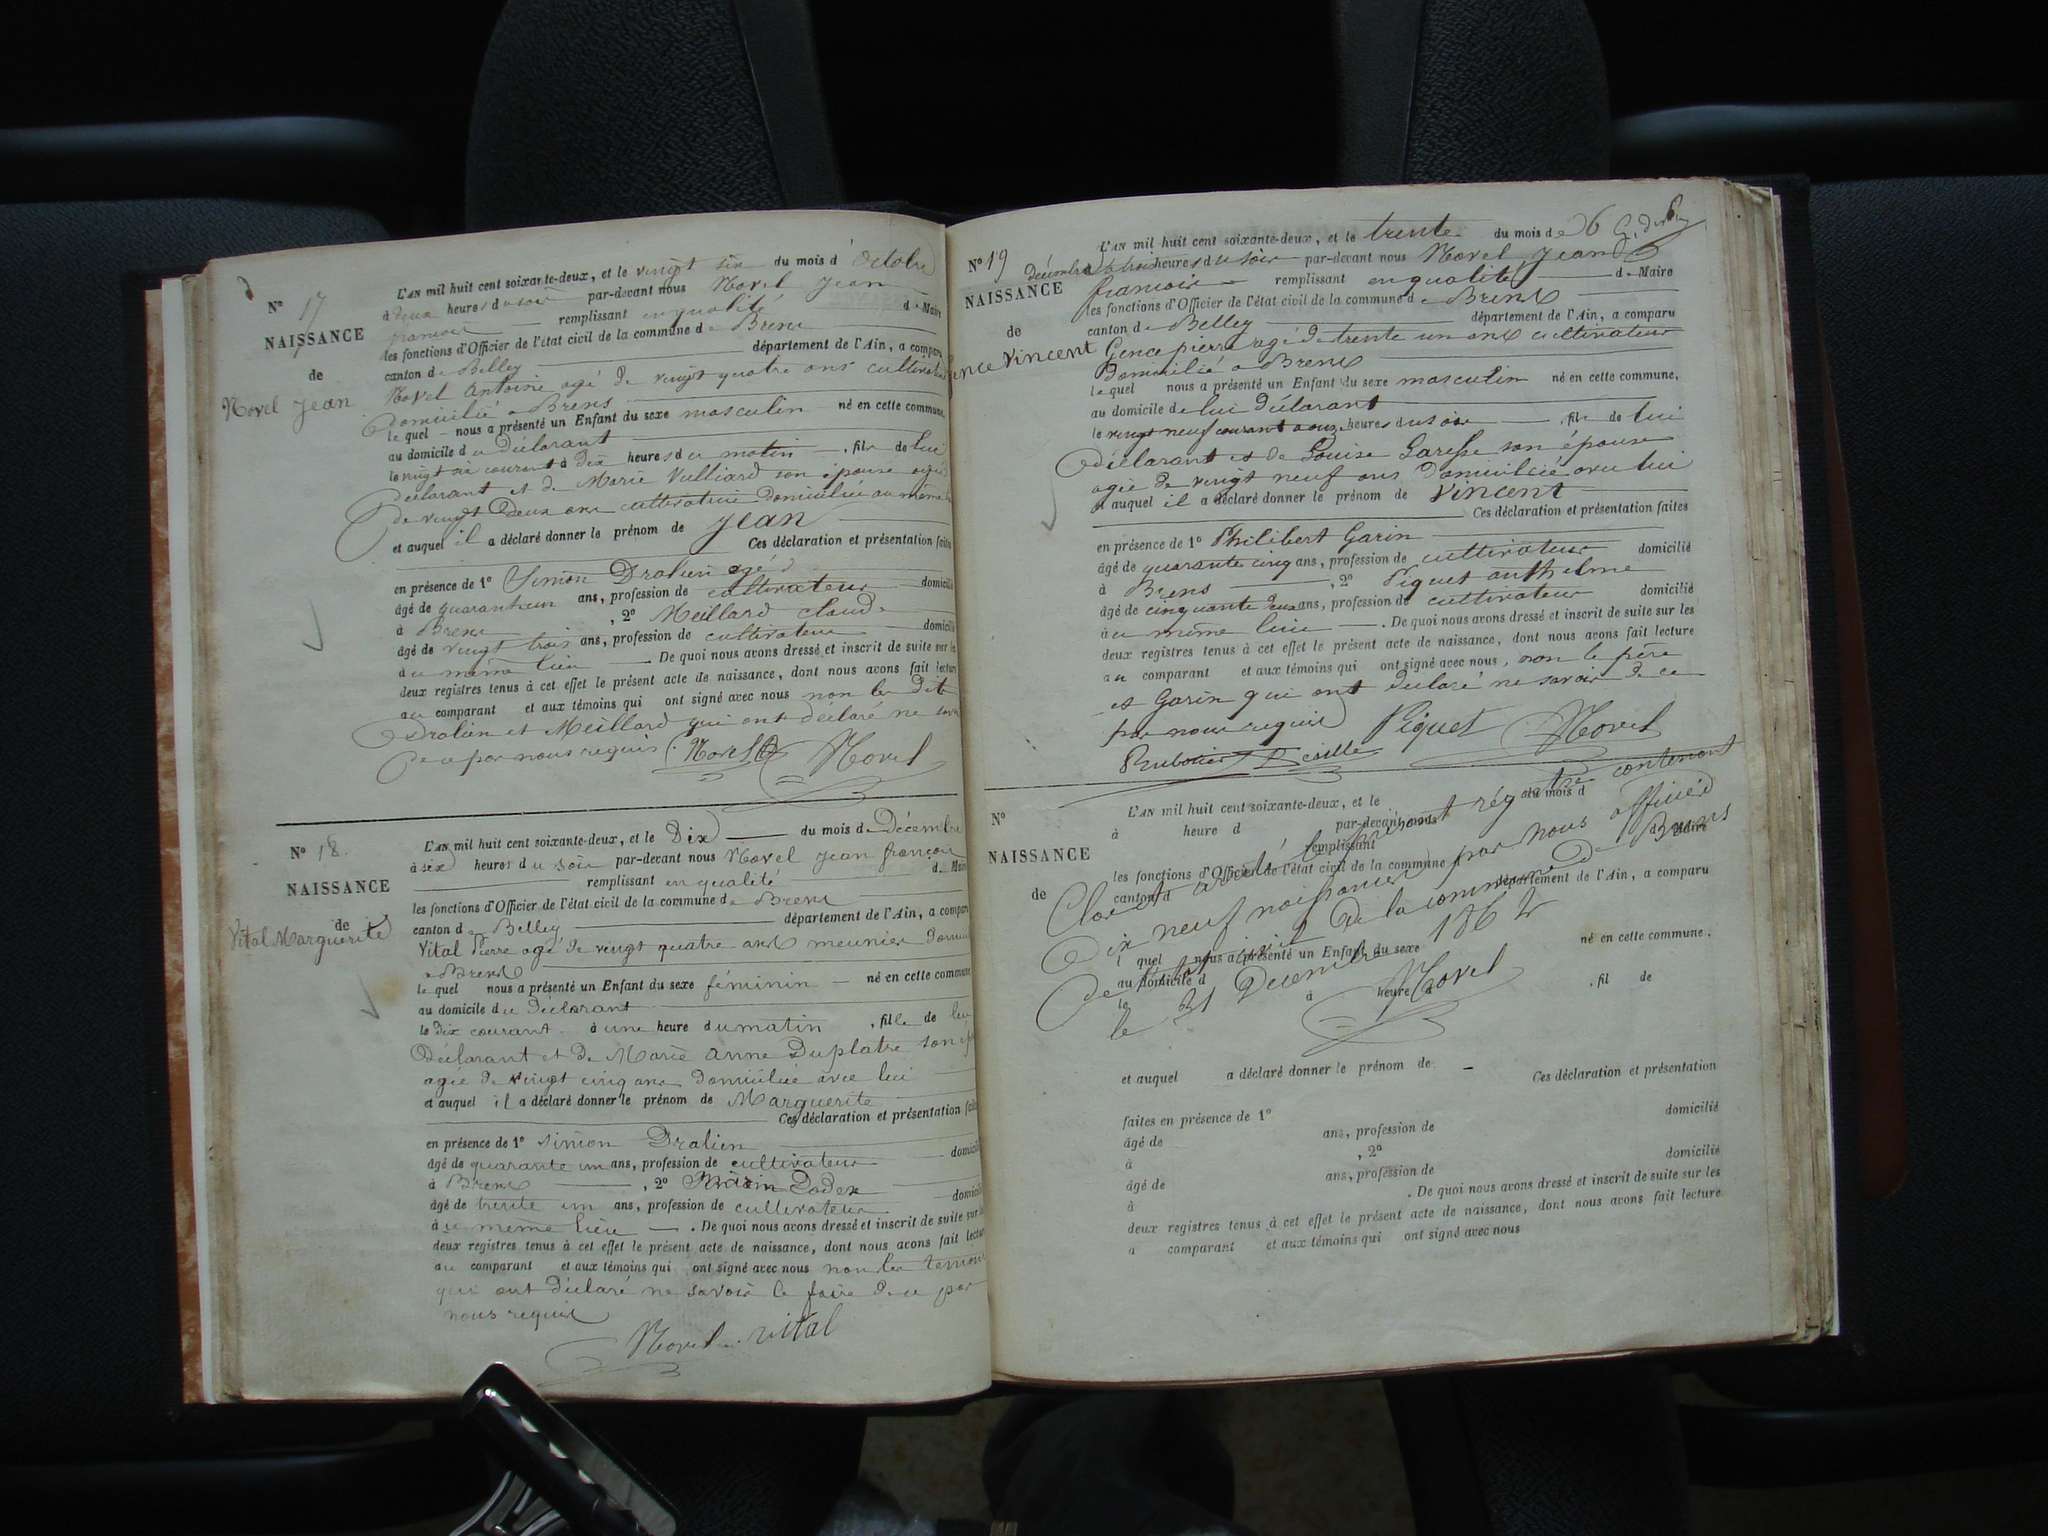 N° 17
NAISSANCE
de
Novel Jean
L'AN mil huit cent soixante-deux, et le vingt six du mois d'Octobre
à deux heures du soir par-devant nous Novel Jean
francois remplissant en qualité de Maire
les fonctions d'Officier de l'état civil de la commune de Brens
canton de Belley département de l'Ain, a comparu
Novel Antoine agé de vingt quatre ans cultivateur
Domicilié a Brens
le quel nous a présenté un Enfant du sexe masculin né en cette commune,
au domicile du Déclarant
le vingt six courant à Dix heures du matin, fils de lui
Déclarant et de Marie Vulliard son épouse agée
de vingt Deux ans cultivatrice Domiciliée au même
et auquel il a déclaré donner le prénom de Jean
Ces déclaration et présentation faites
en présence de 1° Simon Dralien agé d
âgé de quarantun ans, profession de cultivateur domicilié
à Brens, 2° Meillard claude
âgé de vingt trois ans, profession de cultivateur domicilié
du même lieu. De quoi nous avons dressé et inscrit de suite sur les
deux registres tenus à cet effet le présent acte de naissance, dont nous avons fait lecture
au comparant et aux témoins qui ont signé avec nous non les Dits
Dralien et Meillard qui ont déclaré ne savoir
de ce par nous requis. Novel Novel
N° 18.
NAISSANCE
de
Vital Marguerite
L'AN mil huit cent soixante-deux, et le Dix du mois de Décembre
à six heures du soir par-devant nous Novel Jean françois
remplissant en qualité de Maire
les fonctions d'Officier de l'état civil de la commune de Brens
canton de Belley département de l'Ain, a comparu
Vital Pierre agé de vingt quatre ans meunier Domicilié
a Brens
le quel nous a présenté un Enfant du sexe féminin né en cette commune
au domicile du Déclarant
le Dix courant à une heure du matin, fille de lui
Déclarant et de Marie anne Duplatre son
agée de vingt cinq ans Domiciliée avec lui
et auquel il a déclaré donner le prénom de Marguerite
Ces déclaration et présentation faites
en présence de 1° Simon Dralien
âgé de quarante un ans, profession de cultivateur domicilié
à Brens, 2° Dodex
âgé de trente un ans, profession de cultivateur domicilié
à ce même lieu. De quoi nous avons dressé et inscrit de suite sur les
deux registres tenus à cet effet le présent acte de naissance, dont nous avons fait lecture
au comparant et aux témoins qui ont signé avec nous non les temoins
qui ont déclaré ne savoir le faire de ce par
nous requis
Novel Vital
6
N° 19
NAISSANCE
de
Gence Vincent
L'AN mil huit cent soixante-deux, et le trente du mois de
Décembre à trois heures du soir par-devant nous Novel Jean
francois remplissant en qualité de Maire
les fonctions d'Officier de l'état civil de la commune de Brens
canton de Belley département de l'Ain, a comparu
Gence pierre agé de trente un ans cultivateur
Domicilié a Brens
le quel nous a présenté un Enfant du sexe masculin né en cette commune,
au domicile de lui déclarant
le vingt neuf courant a onze heures du soir, fils de lui
déclarant et de Louise son épouse
agée de vingt neuf ans Domiciliée avec lui
et auquel il a déclaré donner le prénom de Vincent
Ces déclaration et présentation faites
en présence de 1° Philibert Garin
âgé de quarante cinq ans, profession de cultivateur domicilié
à Brens, 2° Piquet anthelme
âgé de cinquante deux ans, profession de cultivateur domicilié
à ce même lieu. De quoi nous avons dressé et inscrit de suite sur les
deux registres tenus à cet effet le présent acte de naissance, dont nous avons fait lecture
au comparant et aux témoins qui ont signé avec nous, non le père
et Garin qui ont déclaré ne savoir de ce
par nous requis Piquet Novel
N°
NAISSANCE
de
L'AN mil huit cent soixante-deux, et le du mois d
à heure d par-devant nous
remplissant
les fonctions d'Officier de l'état civil de la commune d
canton d département de l'Ain, a comparu
l quel nous a présenté un Enfant du sexe né en cette commune,
au domicile d
le à heure d, fil de
Clos et arrêté le présent régistre contenant
Dix neuf naissances par nous officier
de l'état civil de la commune de Brens
le 31 Décembre 1862
Novel
et auquel a déclaré donner le prénom de
Ces déclaration et présentation
faites en présence de 1° domicilié
âgé de ans, profession de
à, 2° domicilié
âgé de ans, profession de
à. De quoi nous avons dressé et inscrit de suite sur les
deux registres tenus à cet effet le présent acte de naissance, dont nous avons fait lecture
a comparant et aux témoins qui ont signé avec nous